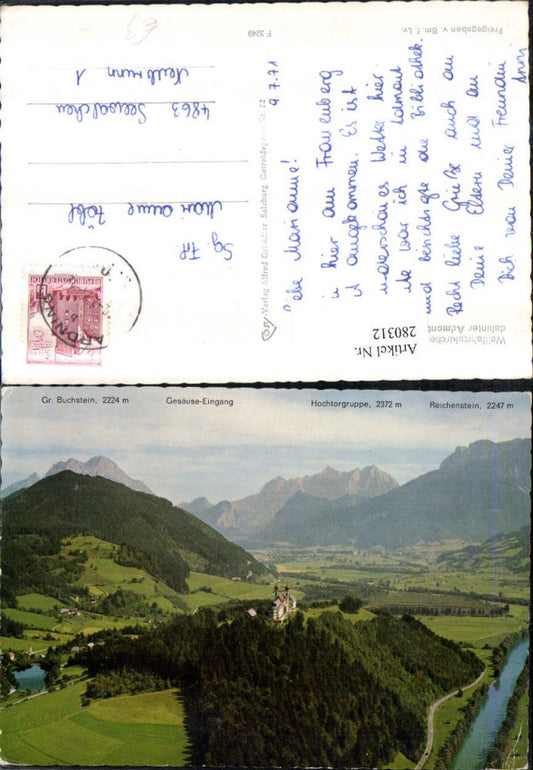 Freigegeben v. Bm. f. Lv.
F 3249
9.7.71
Liebe Marianne!
hier am Frauenberg
angekommen. Es ist
wunderschönes Wetter hier
war ich in Admont
und besichtigte die Bibliothek.
Recht liebe Grüße auch an
Deine Eltern und an
Dich von Deiner Freundin
Sg. Frl.
Marianne
4863 Seewalchen
Neubrunn 1
Verlag Alfred Salzburg, Getreidegasse Nr. 22
REPUBLIK ÖSTERREICH
Wallfahrtskirche
dahinter Admont
Artikel Nr.
280312
Gr. Buchstein, 2224 m Gesäuse-Eingang Hochtorgruppe, 2372 m Reichenstein, 2247 m